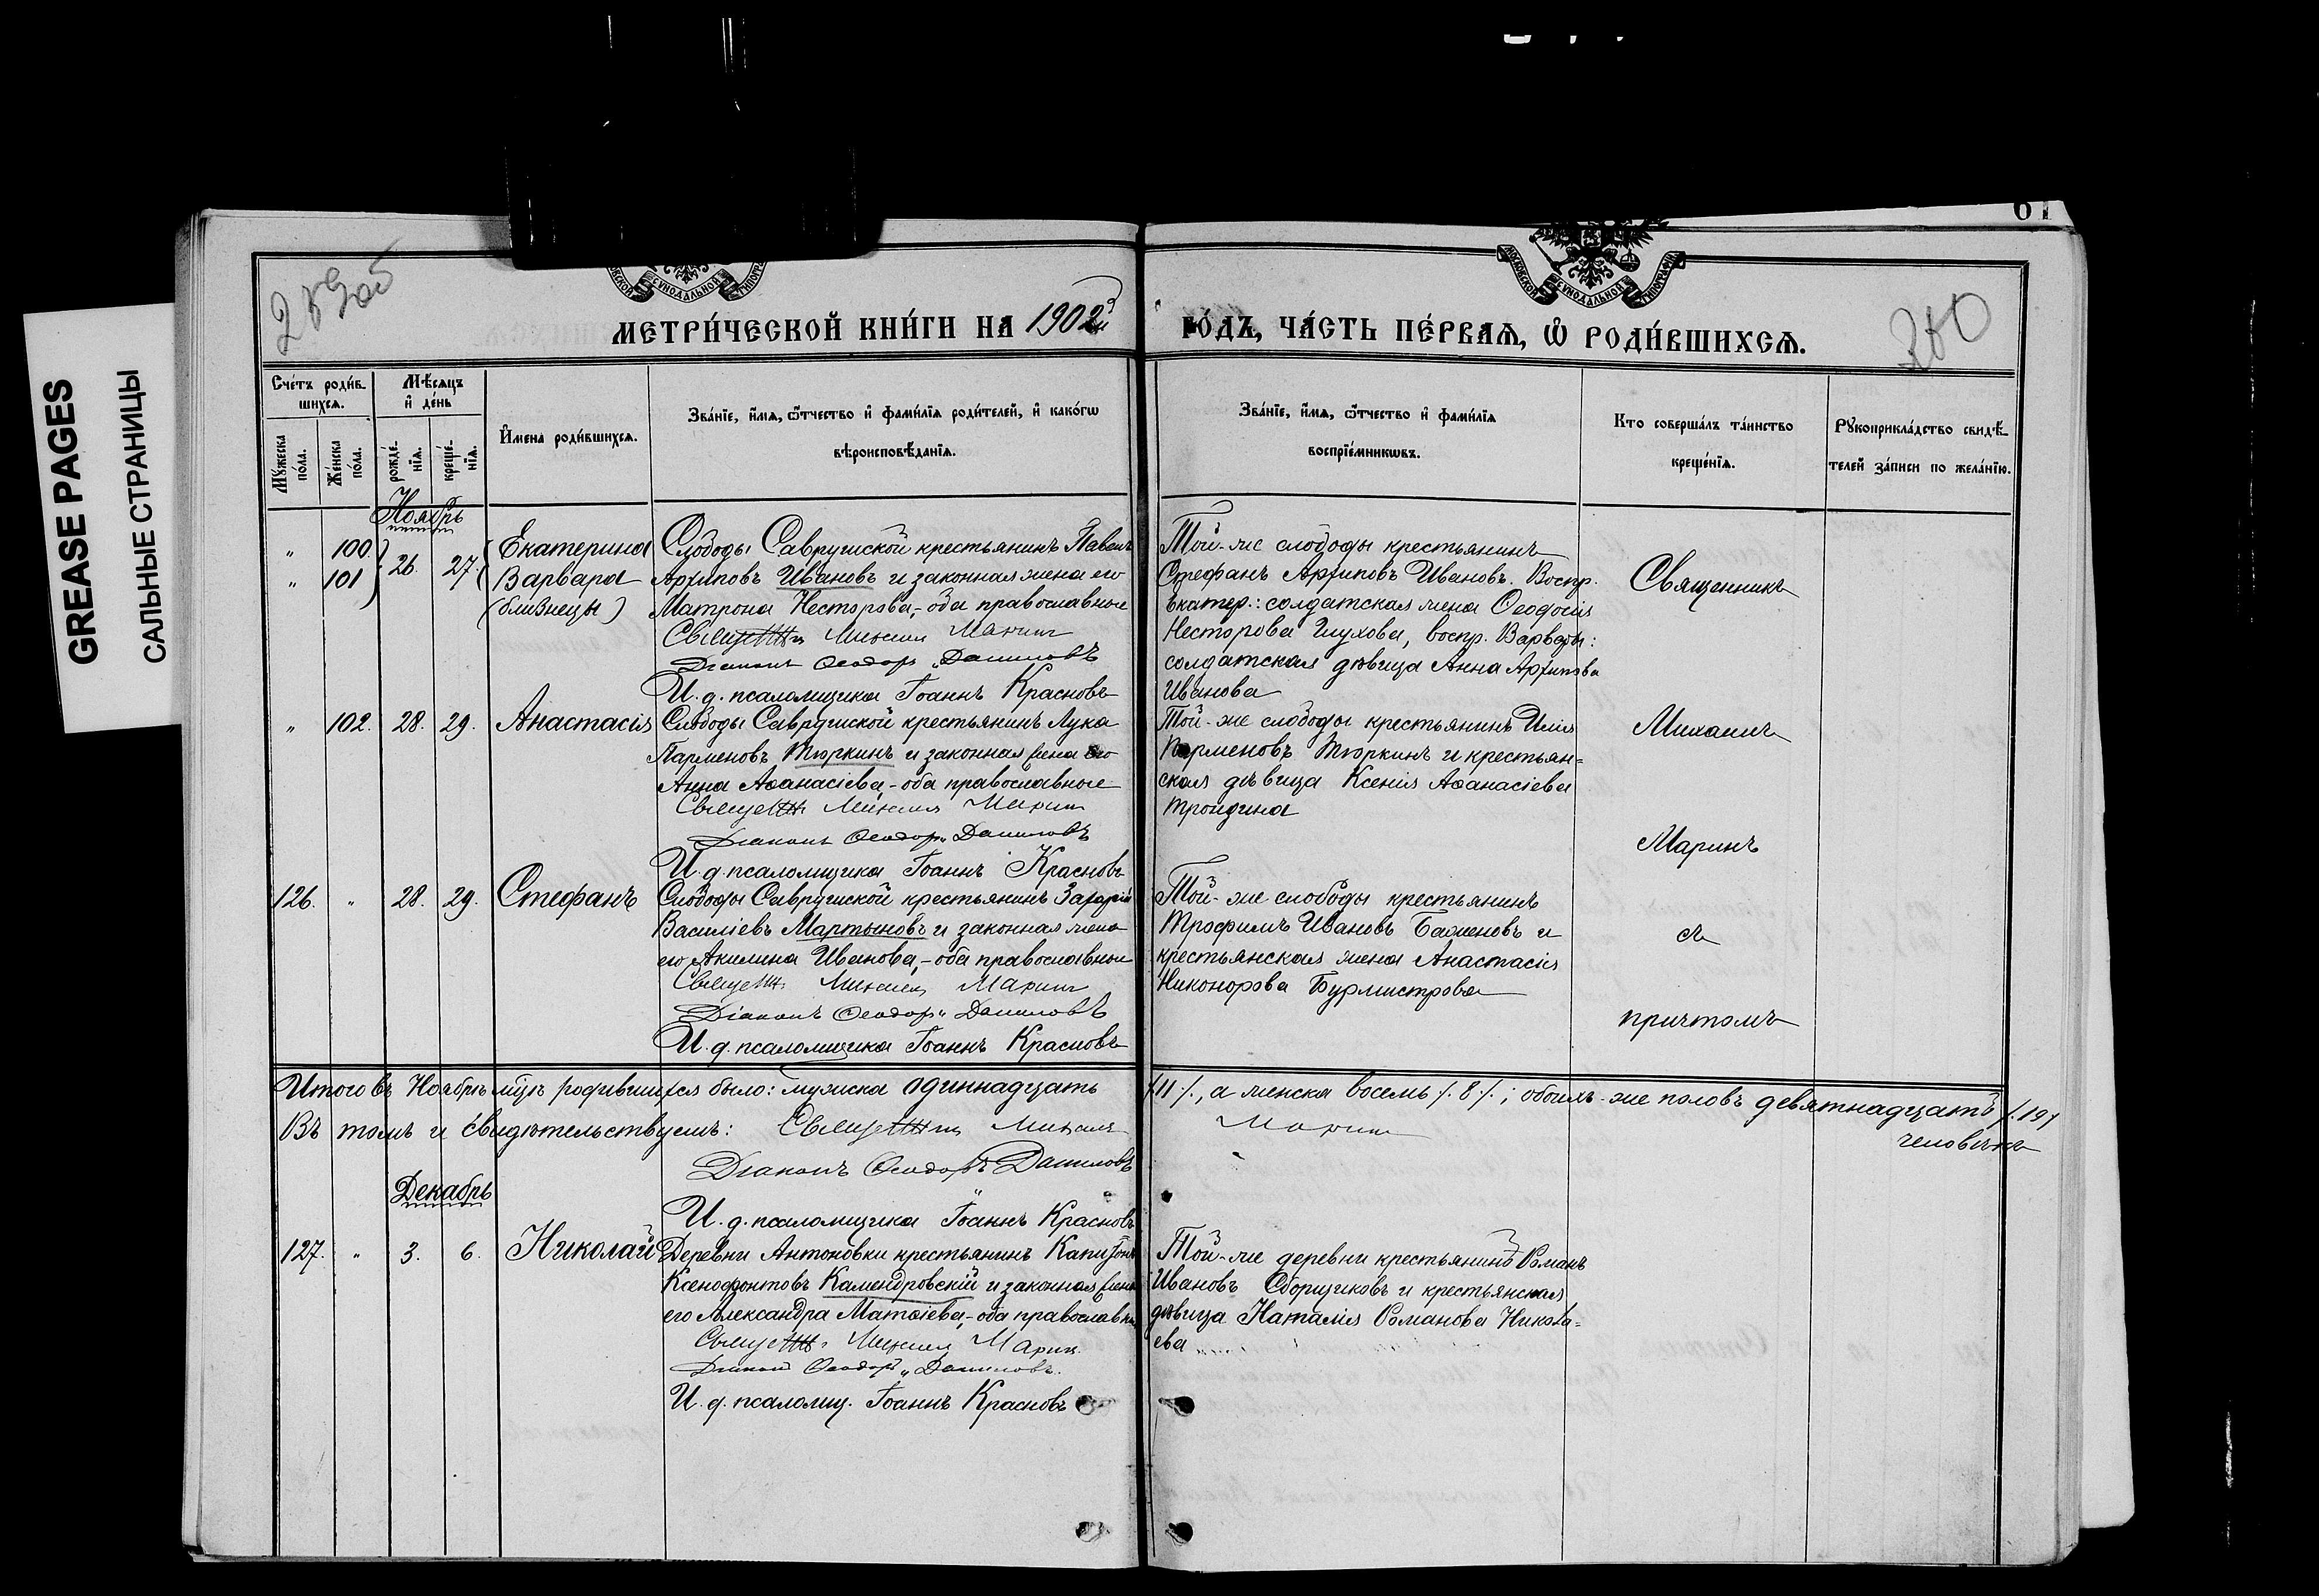 GREASE PAGES
САЛЬНЫЕ СТРАНИЦЫ
61
259об
260
МОСКОВСКОЙ СѴНОДАЛЬНОЙ ТИПОГРАФІИ
МЕТРИ́ЧЕСКОЙ КНИ́ГИ НА 1902й
ГО́ДЪ, ЧА́СТЬ ПЕ́РВАЯ, Ѡ РОДИ́ВШИХСЯ.
Сче́тъ роди́в-
шихся.
Мѣ́сяцъ
и де́нь
И́мена роди́вшихся.
Зва́нїе, и́мя, ѻ́тчество и фами́лїя роди́телей, и како́гѡ
вѣроисповѣ́данїя.
Зва́нїе, и́мя, ѻ́тчество и фами́лїя
воспрїе́мникѡвъ.
Кто соверша́лъ та́инство
креще́нїя.
Рꙋкоприкла́дство свидѣ́-
телей за́писи по жела́нїю.
Мꙋ́жеска
по́ла.
Же́нска
по́ла.
рожде́-
нїя.
креще́-
нїя.
Ноябрь
" 100. 26. 27. Екатерина
" 101 Варвара
(близнецы)
Слободы Саврушской крестьянинъ Павелъ
Архиповъ Ивановъ и законная жена его
Матрона Несторова,-оба православные
Священникъ Михаилъ Маринъ
Діаконъ Ѳеодоръ Даниловъ
И. д. псаломщика Іоаннъ Красновъ
Той-же слободы крестьянинъ
Стефанъ Архиповъ Ивановъ. Воспр.
Екатер.: солдатская жена Ѳеодосія
Несторова Глухова, воспр. Варвары:
солдатская дѣвица Анна Архипова
Иванова
Священникъ
" 102. 28. 29. Анастасія
Слободы Саврушской крестьянинъ Лука
Парменовъ Тюркинъ и законная жена его
Анна Аѳанасіева,-оба православные
Священникъ Михаилъ Маринъ
Діаконъ Ѳеодоръ Даниловъ
И. д. псаломщика Іоаннъ Красновъ
Той-же слободы крестьянинъ Илія
Парменовъ Тюркинъ и крестьян=
ская дѣвица Ксенія Аѳанасіева
Михаилъ
Маринъ
126. " 28. 29. Стефанъ
Слободы Саврушской крестьянинъ Захарій
Василіевъ Мартыновъ и законная жена
его Акилина Иванова,-оба православные
Священникъ Михаилъ Маринъ
Діаконъ Ѳеодоръ Даниловъ
И. д. псаломщика Іоаннъ Красновъ
Той-же слободы крестьянинъ
Трофимъ Ивановъ Баженовъ и
крестьянская жена Анастасія
Никонорова Бурмистрова
съ
причтомъ
Итого въ Ноябрѣ мцѣ родившихся было: мужска одиннадцать /.11/., а женска восемь /.8/.; обоихъ-же половъ девятнадцать /.19/
человѣкъ
Въ томъ и свидѣтельствуемъ: Священникъ Михаилъ Маринъ
Діаконъ Ѳеодоръ Даниловъ
И. д. псаломщика Іоаннъ Красновъ
Декабрь
127. " 3. 6. Николай
Деревни Антоновки крестьянинъ Капитонъ
Ксенофонтовъ Камендровскій и законная жена
его Александра Матѳіева,-оба православные
Священникъ Михаилъ Маринъ
Діаконъ Ѳеодоръ Даниловъ.
И. д. псаломщ. Іоаннъ Красновъ
Той-же деревни крестьянинъ Романъ
Ивановъ Сборщиковъ и крестьянская
дѣвица Наталія Романова Никола=
ева